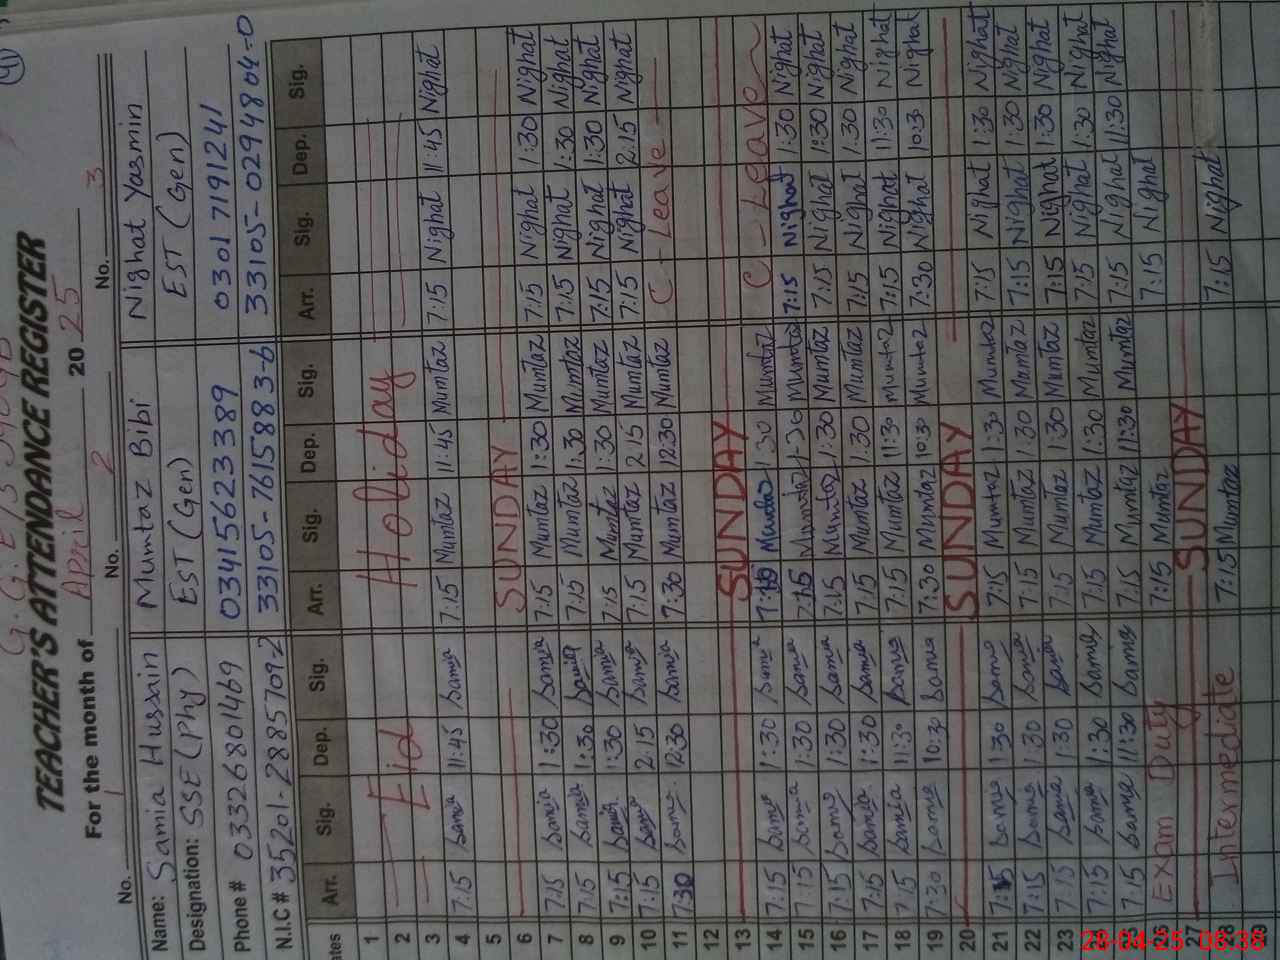 TEACHER'S ATTENDANCE REGISTER
For the month of April 2025
No. 1 No. 2 No. 3
Name: Samia Hussain Mumtaz Bibi Nighat Yasmin
Designation: SSE (Phy) EST (Gen) EST (Gen)
Phone # 03326801469 03415623389 03017191241
N.I.C # 35201-2885709-2 33105-7615883-6 33105-0294804-0
ates Arr. Sig. Dep. Sig. Arr. Sig. Dep. Sig. Arr. Sig. Dep. Sig.
1
2 Eid Holiday
3
4 7:15 Samia 11:45 Samia 7:15 Mumtaz 11:45 Mumtaz 7:15 Nighat 11:45 Nighat
5
6 SUNDAY
7 7:15 Samia 1:30 Samia 7:15 Mumtaz 1:30 Mumtaz 7:15 Nighat 1:30 Nighat
8 7:15 Samia 1:30 Samia 7:15 Mumtaz 1:30 Mumtaz 7:15 Nighat 1:30 Nighat
9 7:15 Samia 1:30 Samia 7:15 Mumtaz 1:30 Mumtaz 7:15 Nighat 1:30 Nighat
10 7:15 Samia 2:15 Samia 7:15 Mumtaz 2:15 Mumtaz 7:15 Nighat 2:15 Nighat
11 7:30 Samia 12:30 Samia 7:30 Mumtaz 12:30 Mumtaz C - Leave
12
13 SUNDAY
14 7:15 Samia 1:30 Samia 7:15 Mumtaz 1:30 Mumtaz C - Leave
15 7:15 Samia 1:30 Samia 7:15 Mumtaz 1:30 Mumtaz 7:15 Nighat 1:30 Nighat
16 7:15 Samia 1:30 Samia 7:15 Mumtaz 1:30 Mumtaz 7:15 Nighat 1:30 Nighat
17 7:15 Samia 1:30 Samia 7:15 Mumtaz 1:30 Mumtaz 7:15 Nighat 1:30 Nighat
18 7:15 Samia 11:30 Samia 7:15 Mumtaz 11:30 Mumtaz 7:15 Nighat 11:30 Nighat
19 7:30 Samia 10:30 Samia 7:30 Mumtaz 10:30 Mumtaz 7:30 Nighat 10:30 Nighat
20 SUNDAY
21 7:15 Samia 1:30 Samia 7:15 Mumtaz 1:30 Mumtaz 7:15 Nighat 1:30 Nighat
22 7:15 Samia 1:30 Samia 7:15 Mumtaz 1:30 Mumtaz 7:15 Nighat 1:30 Nighat
23 7:15 Samia 1:30 Samia 7:15 Mumtaz 1:30 Mumtaz 7:15 Nighat 1:30 Nighat
24 7:15 Samia 1:30 Samia 7:15 Mumtaz 1:30 Mumtaz 7:15 Nighat 1:30 Nighat
25 7:15 Samia 11:30 Samia 7:15 Mumtaz 11:30 Mumtaz 7:15 Nighat 11:30 Nighat
26 Exam Duty 7:15 Mumtaz 7:15 Nighat
27 SUNDAY
28 Intermediate 7:15 Mumtaz 7:15 Nighat
29
28-04-25 08:38